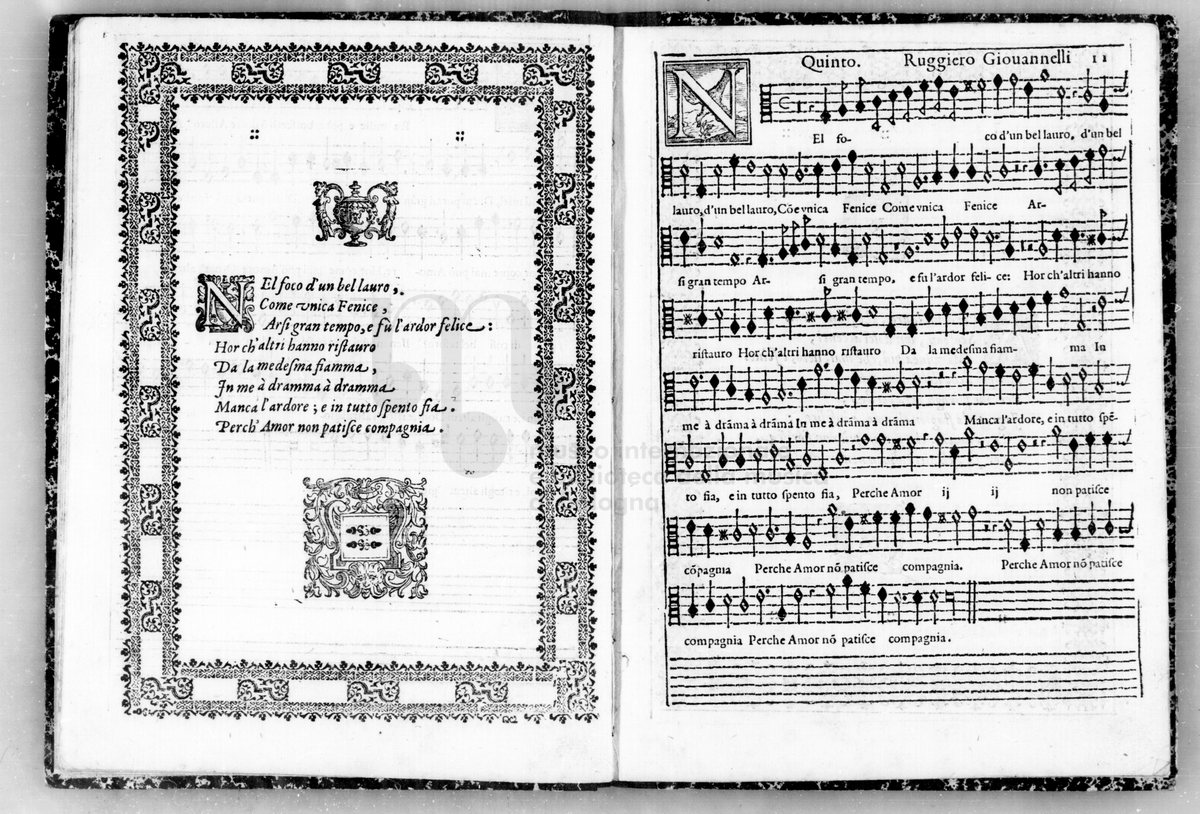 NEl foco d'un bel lauro,
Come vnica Fenice,
Arsi gran tempo, e fù l'ardor felice:
Hor ch'altri hanno ristauro
Da la medesma fiamma,
In me à dramma à dramma
Manca l'ardore; e in tutto spento fia.
Perch'Amor non patisce compagnia.
Quinto. Ruggiero Giouannelli 11
NEl fo- co d'un bel lauro, d'un bel
lauro, d'un bel lauro, Cōe vnica Fenice Come vnica Fenice Ar-
si gran tempo Ar- si gran tempo, e fu l'ardor felice: Hor ch'altri hanno
ristauro Hor ch'altri hanno ristauro Da la medesma fiam- ma In
me à drāma à drāma In me à drāma à drāma Manca l'ardore, e in tutto spē-
to fia, e in tutto spento fia, Perche Amor ij ij non patisce
cōpagnia Perche Amor nō patisce compagnia. Perche Amor nō patisce
compagnia Perche Amor nō patisce compagnia.